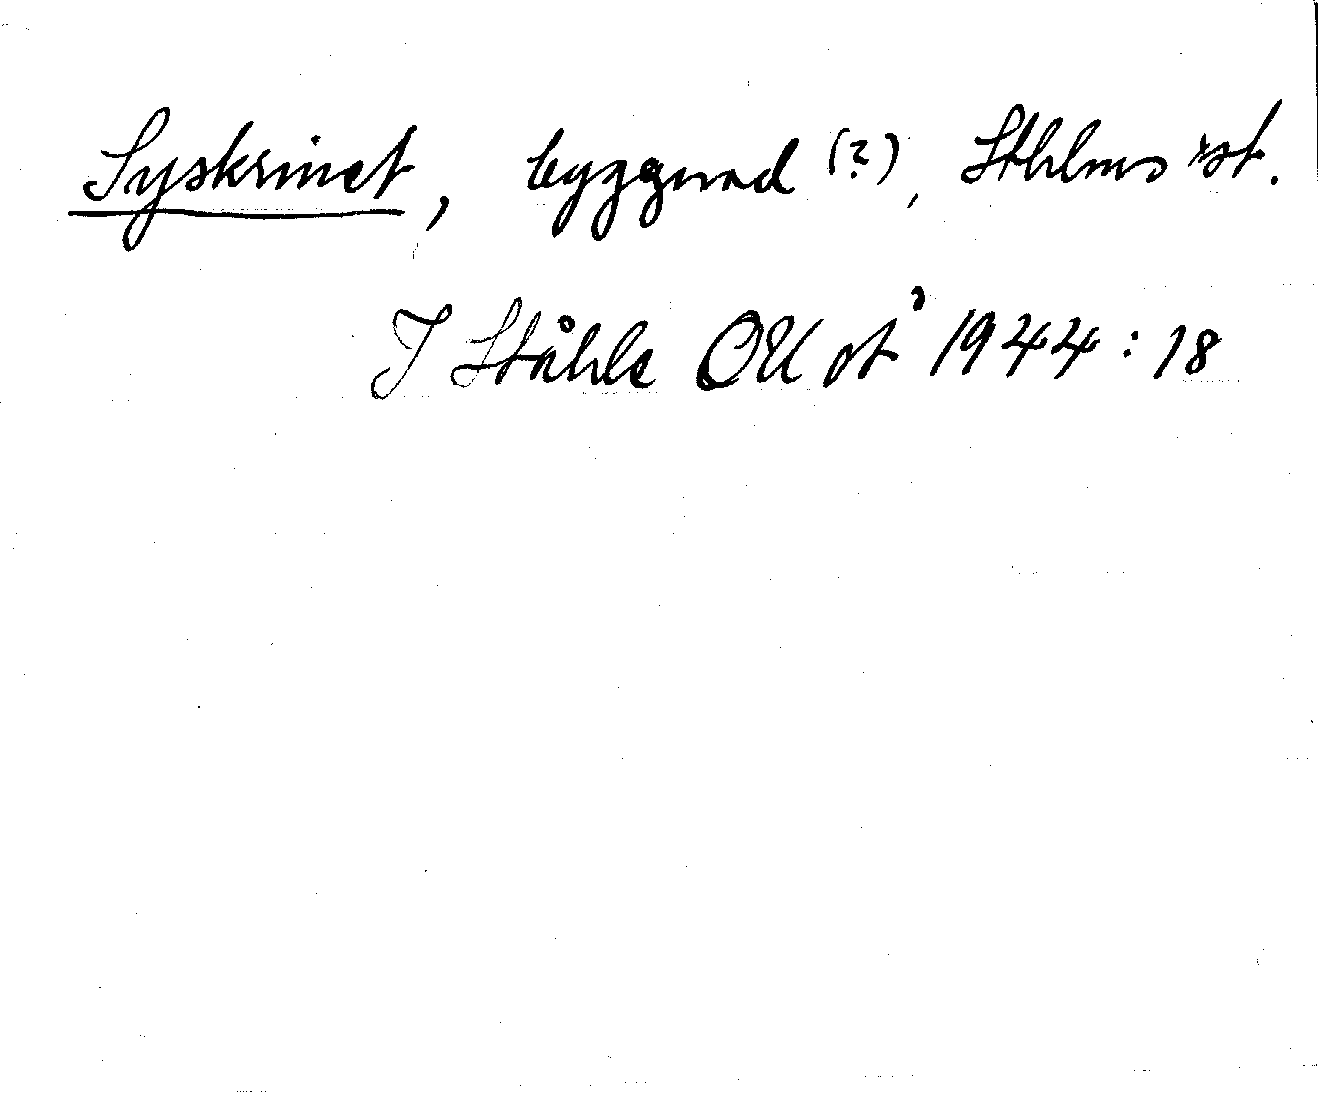 Syskrinet, byggnad (?), Sthlms st.
I Ståhle OU st 1944:18